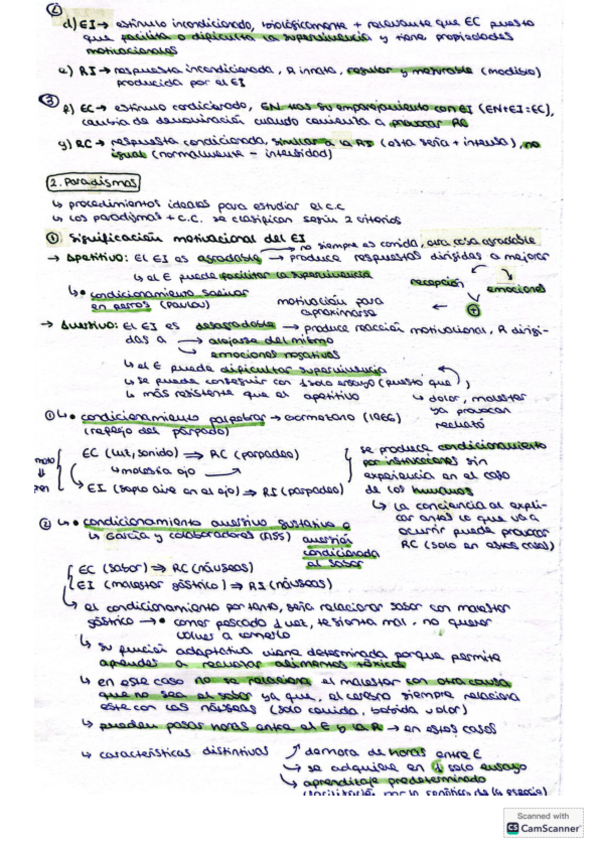 ②
d) EI → estímulo incondicionado, biológicamente + relevante que EC puesto
que facilita o dificulta la supervivencia y tiene propiedades
motivacionales
e) RI → respuesta incondicionada, R innata, regular y mesurable (medible)
producida por el EI
③ f) EC → estímulo condicionado, EN tras su emparejamiento con EI (EN+EI=EC),
cambia de denominación cuando comienza a provocar RC
g) RC → respuesta condicionada, similar a la RI (esta sería + intensa), no
igual (normalmente - intensidad)
2. Paradigmas
↳ procedimientos ideales para estudiar el c.c
↳ los paradigmas + C.C. se clasifican según 2 criterios
① Significación motivacional del EI
→ no siempre es comida, otra cosa agradable
→ Apetitivo: El EI es agradable → produce respuestas dirigidas a mejorar
↳ el E puede facilitar la supervivencia
recepción
emociones
↳ • condicionamiento salivar
en perros (Paulov)
motivación para
aproximarse
← +
→ Aversivo: El EI es desagradable → produce reacción motivacional, R dirigi-
das a → alejarse del mismo
emociones negativas
↳ el E puede dificultar supervivencia
↳ se puede conseguir con 1 solo ensayo (puesto que )
↳ más resistente que el apetitivo
↳ dolor, malestar
ya provocan
rechazo
① ↳ • condicionamiento palpebral → Gormezano (1966)
(reflejo del párpado)
EC (luz, sonido) ⇒ RC (parpadeo)
↳ molestia ojo
EI (soplo aire en el ojo) ⇒ RI (parpadeo)
se produce condicionamiento
por instrucciones sin
experiencia en el caso
de los humanos
↳ La conciencia al expli-
car antes lo que va a
ocurrir puede provocar
RC (solo en estos casos)
② ↳ • condicionamiento aversivo gustativo o
↳ García y colaboradores (1955)
aversión
condicionada
al sabor
EC (sabor) ⇒ RC (náuseas)
EI (malestar gástrico) ⇒ RI (náuseas)
↳ el condicionamiento por tanto, sería relacionar sabor con malestar
gástrico → • comer pescado 1 vez, te sienta mal. no querer
volver a comerlo
↳ su función adaptativa viene determinada porque permite
aprender a rechazar alimentos tóxicos
↳ en este caso no se relaciona el malestar con otra causa
que no sea el sabor ya que, el cerebro siempre relaciona
este con las náuseas (solo comida, bebida y olor)
↳ pueden pasar horas entre el E y la R → en estos casos
↳ características distintivas
↗ demora de horas entre E
→ se adquiere en 1 solo ensayo
↳ aprendizaje predeterminado
Scanned with
CS CamScanner